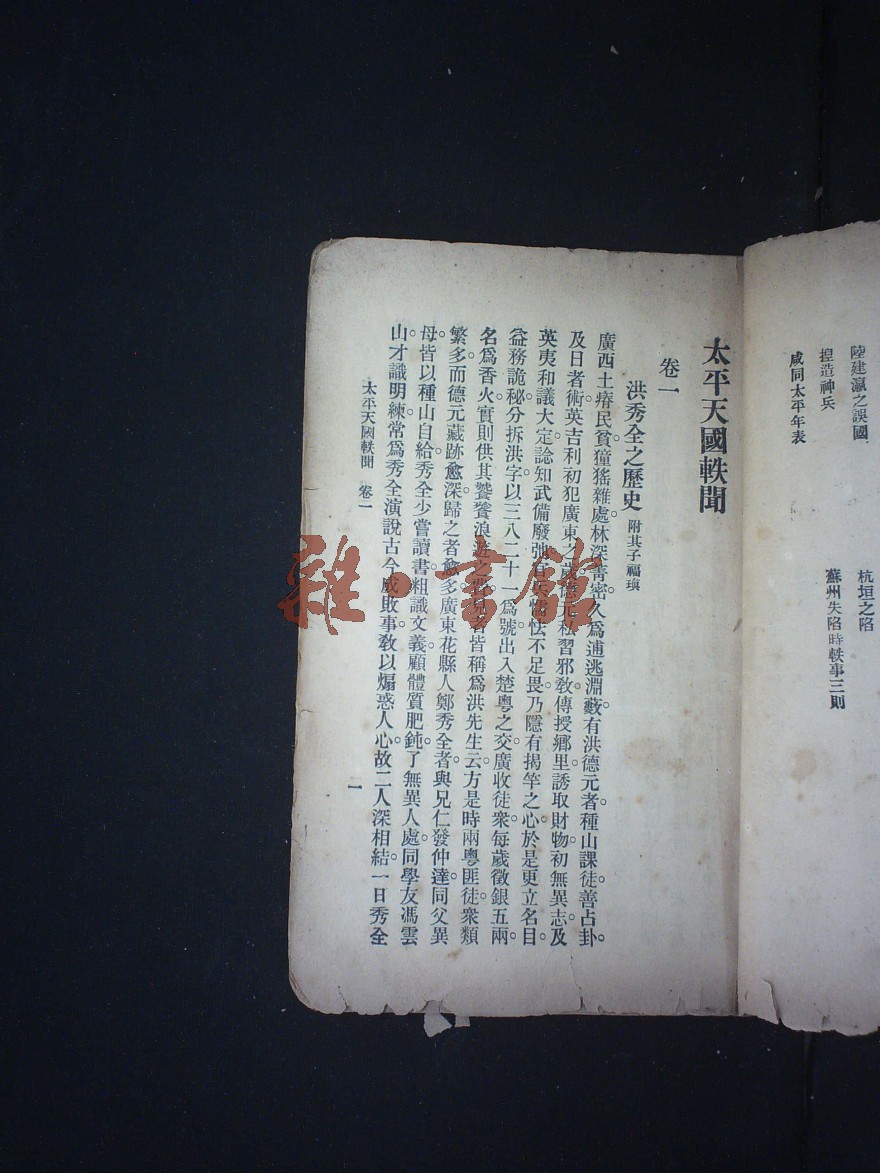 陸建瀛之誤國
杭垣之陷
捏造神兵
蘇州失陷時軼事三則
咸同太平年表
太平天國軼聞
卷一
洪秀全之歷史 附其子福瑱
廣西土瘠民貧。獞猺雜處。林深菁密。久爲逋逃淵藪。有洪德元者。種山課徒。善占卦
及日者術。英吉利初犯廣東之歲。德元私習邪敎。傳授鄉里。誘取財物。初無異志。及
英夷和議大定。諗知武備廢弛。怯不足畏。乃隱有揭竿之心。於是更立名目。
益務詭秘。分拆洪字以三八二十一爲號。出入楚粵之交。廣收徒衆。每歲徵銀五兩。
名爲香火。實則供其饕餮浪游之者皆稱爲洪先生云。方是時兩粵匪徒衆類
繁多。而德元藏跡愈深。歸之者愈多。廣東花縣人鄭秀全者。與兄仁發仲達同父異
母。皆以種山自給。秀全少嘗讀書。粗識文義。顧體質肥鈍。了無異人處。同學友馮雲
山才識明練。常爲秀全演說古今成敗事。敎以煽惑人心。故二人深相結。一日秀全
太平天國軼聞 卷一
一
雜·書館